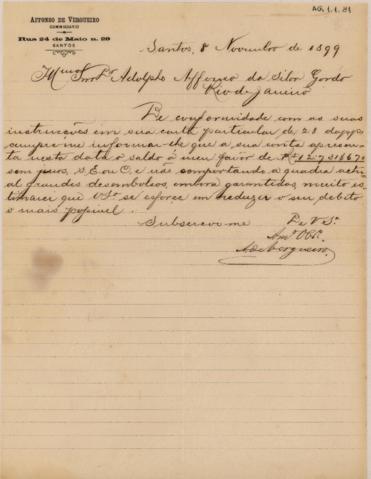 AG. 1.1.81
AFFONSO DE VERGUEIRO
COMMISSARIO
Rua 24 de Maio n. 29
SANTOS
Santos, 8 Novembro de 1899
Illmo Snr Dr Adolpho Affonso da Silva Gordo
Rio de Janeiro
De conformidade com as suas
instrucções em sua carta particular de 28
cumpre-me informar-lhe que a sua conta apresen-
ta nesta data o saldo á meu favor de
sem juros, S. E. ou O. e não comportando a quadra actu-
al grandes desembolsos, embora garantidos muito es-
timarei que VSa se esforce em reduzir o seu debito
o mais possivel.
Subscrevo-me De V Sa
Amo Obo
A de Vergueiro